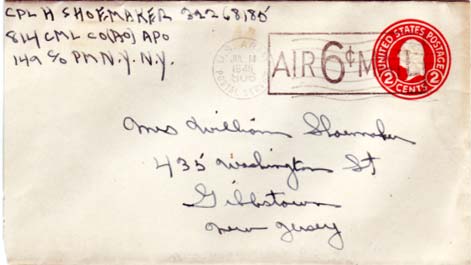 CPL H SHOEMAKER 32268185
814 CML CO (AO) APO
149 C/O PM N.Y. N.Y.
1945
AIR 6¢ M
UNITED STATES POSTAGE
2 2
CENTS
Mrs William Shoemaker
435 Washington St
Gibbstown
New Jersey